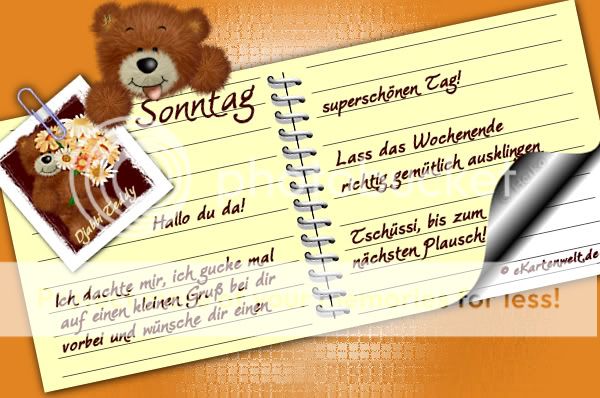 Sonntag
Hallo du da!
Ich dachte mir, ich gucke mal
auf einen kleinen Gruß bei dir
vorbei und wünsche dir einen
superschönen Tag!
Lass das Wochenende
richtig gemütlich ausklingen
Tschüssi, bis zum
nächsten Plausch!
© eKartenwelt.de
photobucket
memories for less!